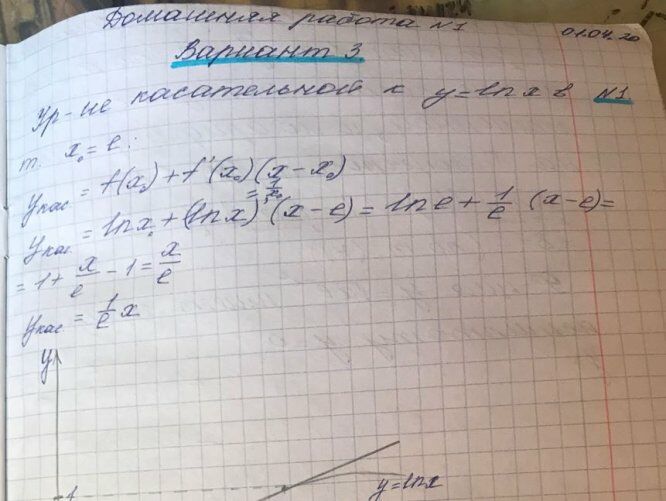 Домашняя работа N1
01.04.20
Вариант 3.
N1
Ур-ие касательной к y=lnx в
т. x₀=e:
yкас = f(x₀)+f'(x₀)(x-x₀)
yкас = lnx₀+(lnx)'(x-e)=lne+1/e (x-e)=
=1/x₀
=1+x/e-1=x/e
yкас = 1/e x
y
1
y=lnx